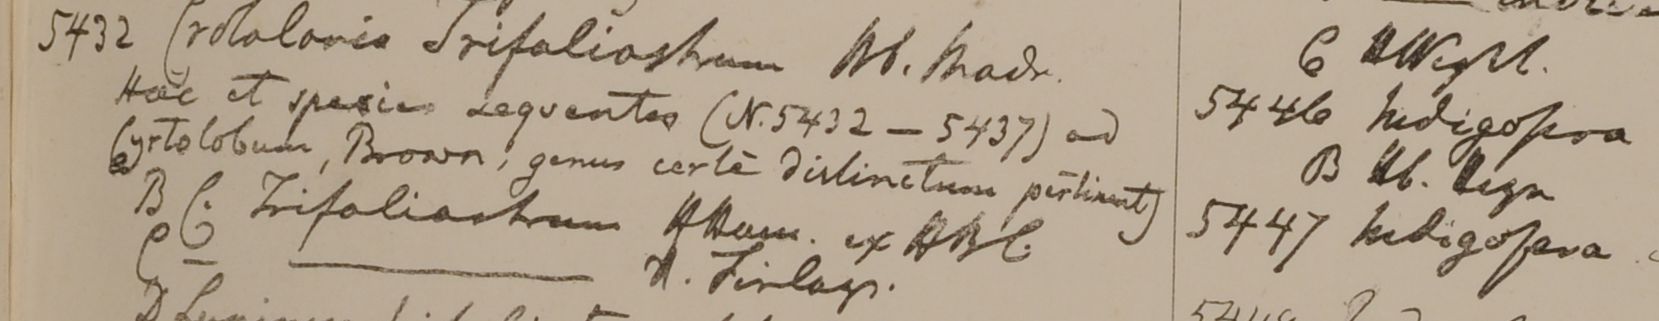 5432 Crotolaria Trifoliastrum Hb. Madr.
Hae et species sequentes (N. 5432 — 5437) ad
Cyrtolobum, Brown, genus certè distinctum pertinent)
B C. Trifoliastrum HHam. ex HBC.
C — ——— H. Finlays.
D
C HWight.
5446 Indigofera
B Hb.
5447 Indigofera